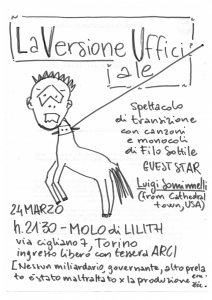 La Versione Uffici
iale
Spettacolo
di transizione
con canzoni
e monocoli
di Filo Sottile
GUEST STAR
Luigi Sominnelli
(from Cathedral
town, USA)
24 MARZO
h. 21.30 - MOLO di LILITH
via cigliano 7, Torino
ingresso libero con tessera ARCI
[Nessun miliardario, governante, alto prela
to è stato maltrattato x la produzione